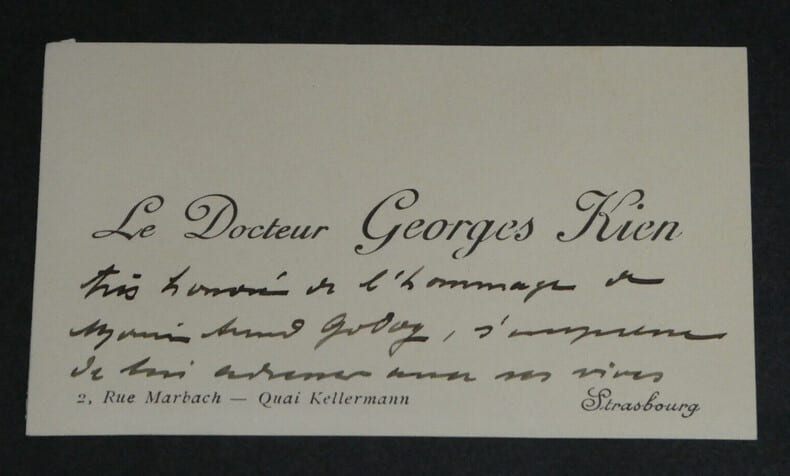 Le Docteur Georges Kien
très honoré de l'hommage de
Monsieur Armand Godoy, s'empresse
de lui adresser avec ses vives
2, Rue Marbach — Quai Kellermann
Strasbourg